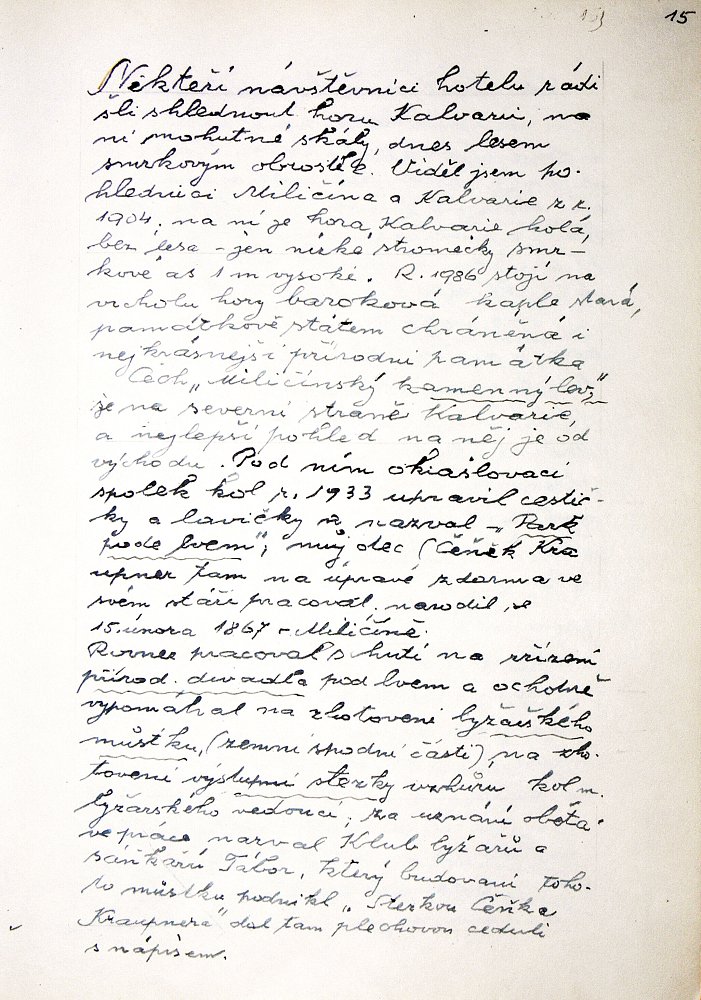 15
Někteří návštěvníci hotelu rádi
šli shlednout horu Kalvarii, na
ní mohutné skály, dnes lesem
smrkovým obrostlé. Viděl jsem po-
hlednici Miličína a Kalvarie z r.
1904, na ní je hora Kalvarie holá,
bez lesa - jen nízké stromečky smr-
kové as 1 m vysoké. R. 1986 stojí na
vrcholu hory baroková kaple stará,
památkově státem chráněná i
nejkrásnejší přírodní památka
Čech „Miličínský kamenný lev"
je na severní straně Kalvarie,
a nejlepší pohled na něj je od
východu. Pod ním okrašlovací
spolek kol r. 1933 upravil cestič-
ky a lavičky a nazval - „Park
pode lvem", můj dec (Čeněk Kra
upner tam na úpravě zdarma ve
svém stáří pracoval, narodil se
15. února 1867 - Miličíně.
Rovněž pracoval s chutí na zřízení
přírod. divadla pod lvem a ochotně
vypomáhal na zhotovení lyžařského
můstku, (zemní spodní části), na zho-
tovení výstupní stezky vzhůru kol m.
lyžařského vedoucí, za uznání oběta-
vé práce nazval Klub lyžařů a
sáňkařů Tábor, který budovaní toho-
to můstku podnikl „Stezkou Čeňka
Kraupnera" dal tam plechovou ceduli
s nápisem.